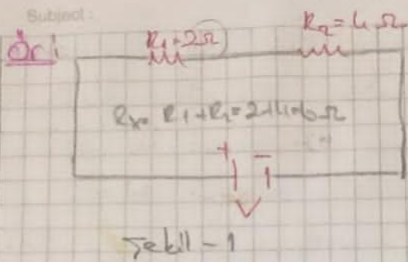 Subject:
Ör:
R1=2Ω R2=4Ω
R= R1+R2=2+4=6Ω
+ -
V
Şekil-1